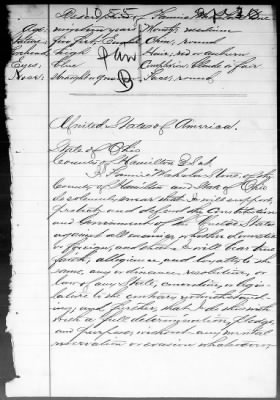 1055
Age: nineteen years Mouth; medium
Stature; five feet, Chin, round
Forehead high Hair; red or auburn
Eyes; blue Complexion, blonde or fair
Nose; straight Face; round,
B
United States of America.
State of Ohio
County of Hamilton
I, of the
County of Hamilton and State of Ohio
do solemnly swear that I will support,
protect, and defend the Constitution
and Government of the United States
against all enemies, whether domestic
or foreign, and that I will bear true
faith, allegiance and loyalty to the
same, any ordinance, resolution, or
law of any State, convention, or legis-
lature to the contrary notwithstand-
ing; and further, that I do this
with a full determination, pledge,
and purpose, without any mental
reservation or evasion whatsoever,